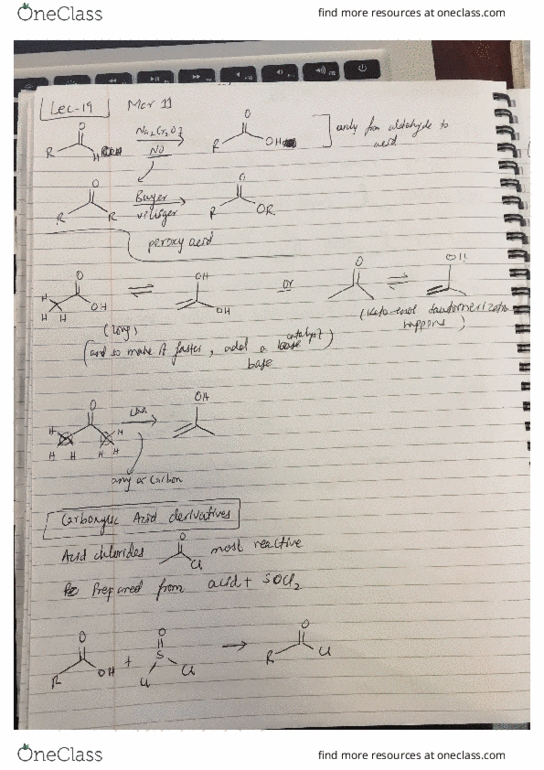 OneClass
find more resources at oneclass.com
Lec-19 Mar 11
O Na2Cr2O7 O
R H NO R OH only from aldehyde to
acid
O Bayer O
R R villiger R OR
peroxy acid
O OH or O OH
H H H OH OH
(long) (Keto-enol tautomerization
happens)
(and so make it faster, add a base catalyst)
base
O LDA OH
H H H H H H
any α carbon
Carboxylic Acid derivatives
Acid chlorides O Cl most reactive
Prepared from acid + SOCl2
O O O
R OH + S Cl Cl → R Cl
OneClass
find more resources at oneclass.com